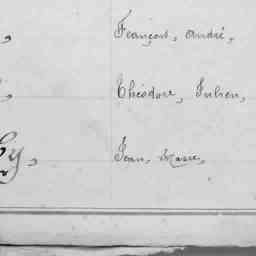 François, André,
Théodore, Julien,
Jean, Marie,